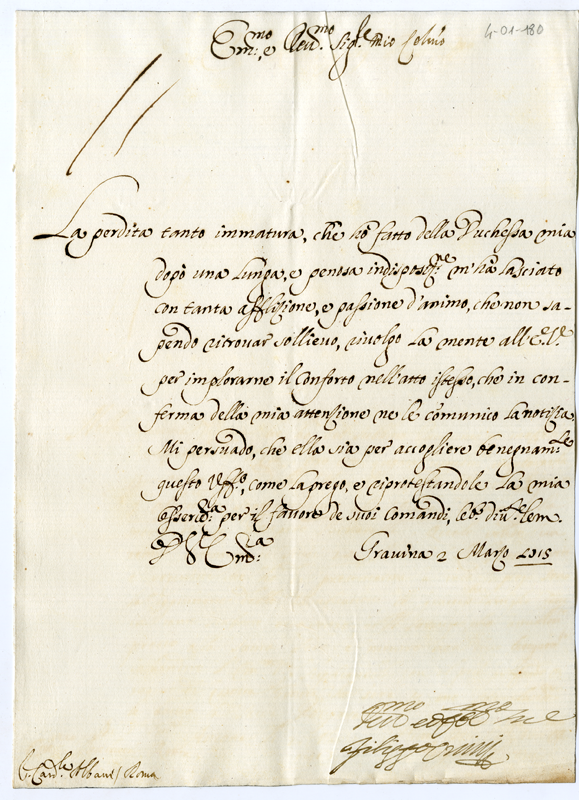 4-01-180
Em:mo e Reu:mo Sig:re mio Colmo
La perdita tanto immatura, che hò fatto della Duchessa mia
dopò una lunga, e penosa indisposiz:ne m'hà lasciato
con tanta afflizione, e passione d'animo, che non sa-
pendo ritrovar sollievo, rivolgo la mente all'E. V.
per implorarne il conforto nell'atto istesso, che in con-
ferma della mia attenzione ne le comunico la notizia
Mi persuado, che ella sia per accogliere benegnam:te
questo Uff:o, come la prego, e riprotestandole la mia
per il favore de suoi comandi, le b:
D. V. Em:za Gravina 2 Marzo
Filippo Orsini
S. Card:le Albani / Roma